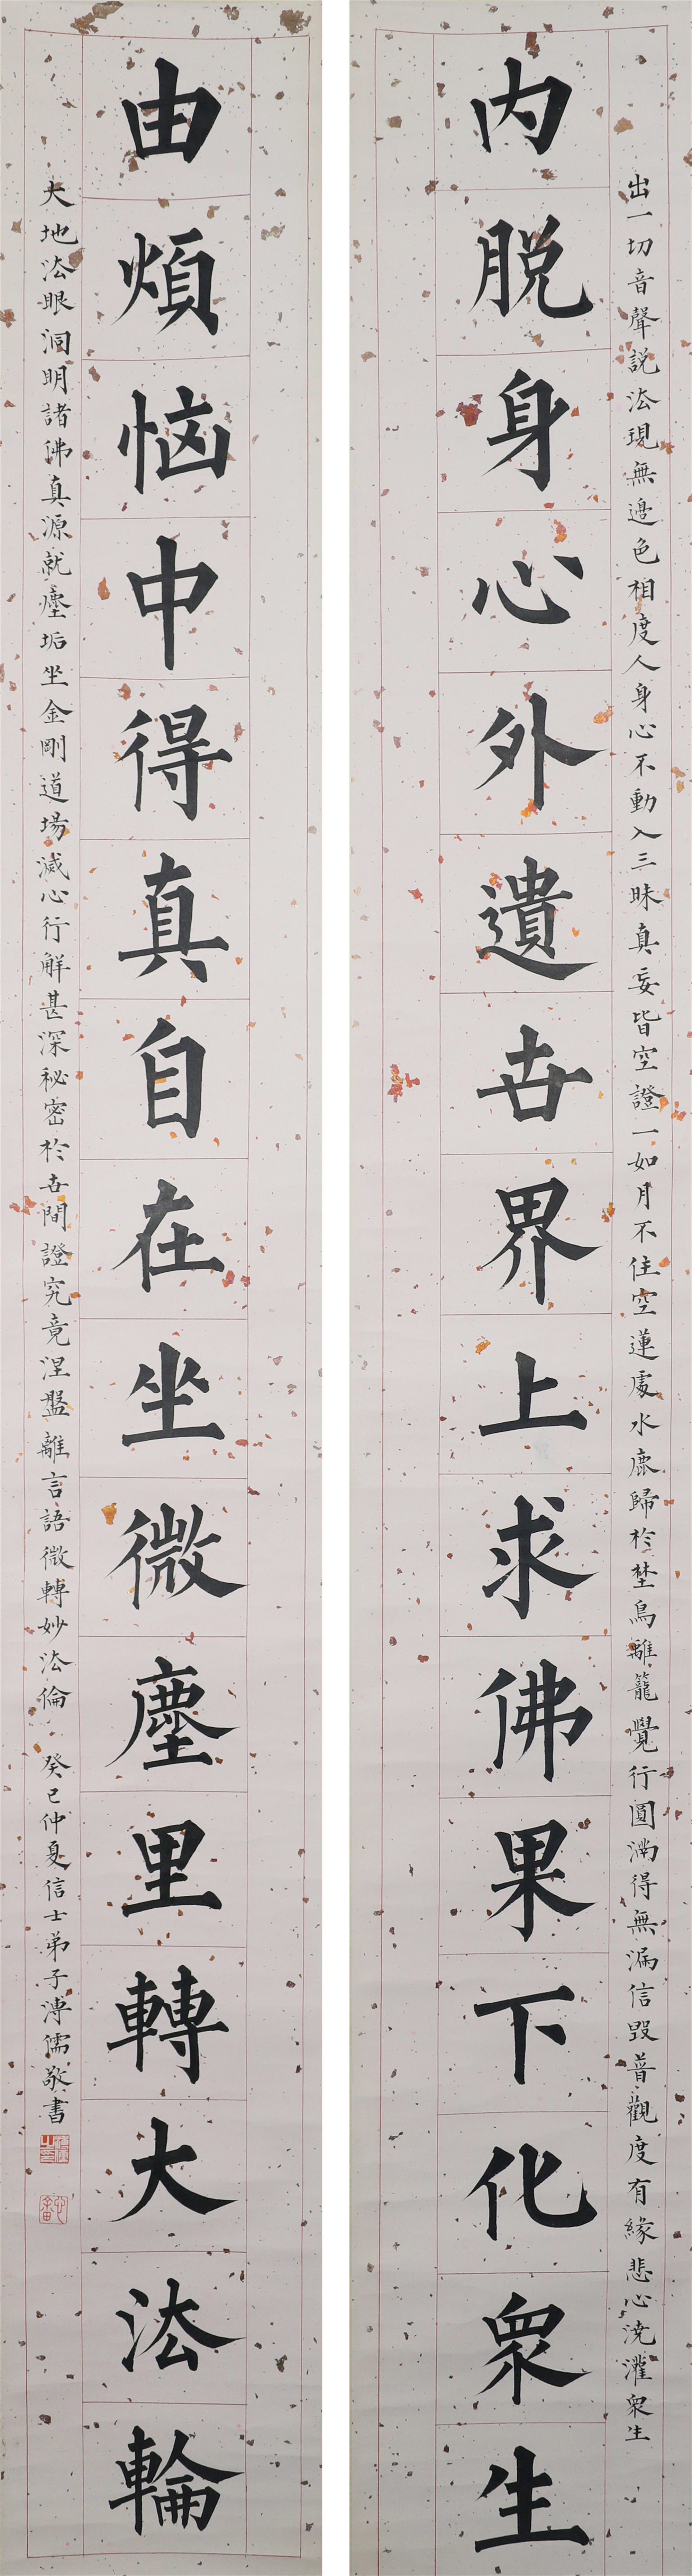 出一切音聲説法現無邊色相度人身心不動入三昧真妄皆空證一如月不住空蓮處水鹿歸於埜鳥離籠覺行圓滿得無漏信毀普觀度有緣悲心澆灌衆生
内脱身心外遺世界上求佛果下化衆生
由煩恼中得真自在坐微塵里轉大法輪
大地法眼洞明諸佛真源就塵垢坐金剛道場滅心行解甚深秘密於世間證究竟涅盤離言語微轉妙法倫 癸巳仲夏信士弟子溥儒敬書